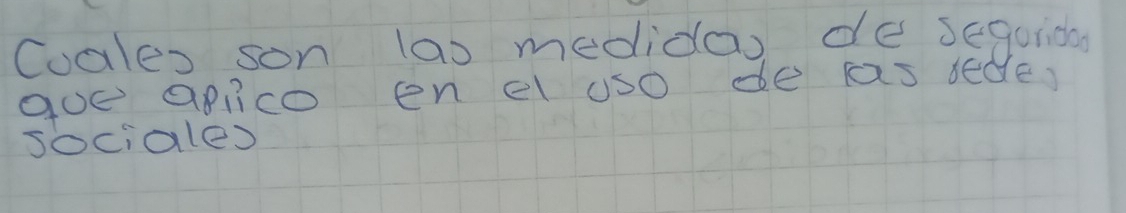 Cuales son las medidas de seguridad
que aplico en el uso de las redes
sociales